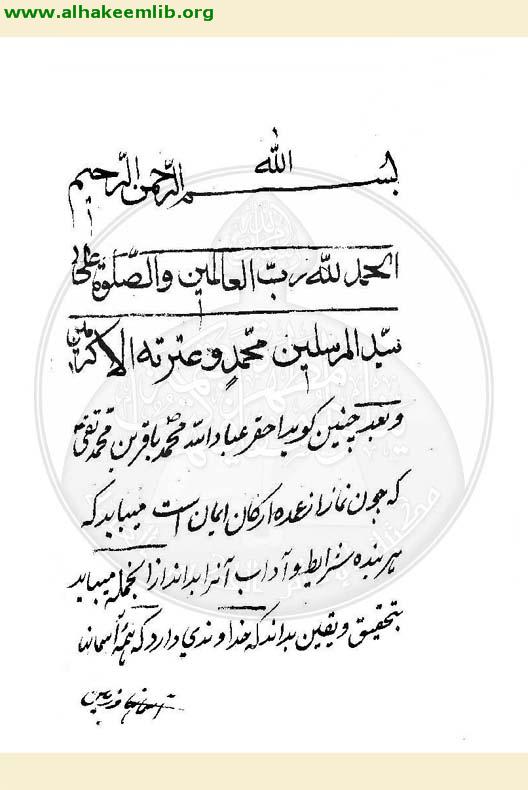 www.alhakeemlib.org
بسم الله الرحمن الرحیم
الحمد لله رب العالمین والصلوة علی
سید المرسلین محمد وعترته الاکرمین
وبعد چنین کوید احقر عباد الله محمد باقر بن محمد تقی
که چون نماز از عمده ارکان ایمان است میباید که
هر بنده شرایط و آداب آنرا بداند از الجمله میباید
بتحقیق و یقین بداند که خداوندی دارد که همه آسمانها